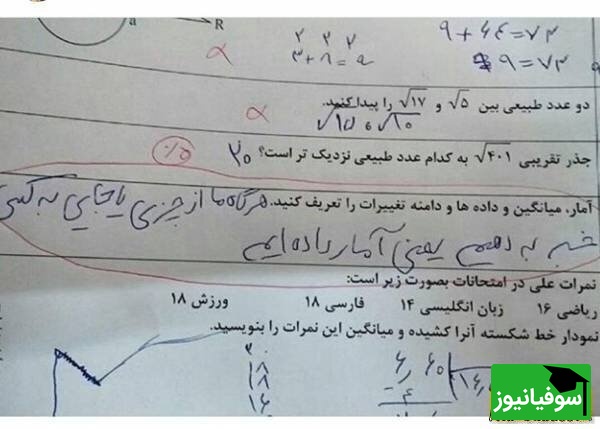 R
a
۲ ۲ ۲
۳ + ۸ = ۹
۹ + ۶۴ = ۷۳
۹ = ۷۳
دو عدد طبیعی بین √۵ و √۱۷ را پیدا کنید.
√۱۵ و √۱۰
جذر تقریبی √۴۰۱ به کدام عدد طبیعی نزدیک تر است؟ ۲۰
آمار، میانگین و داده ها و دامنه تغییرات را تعریف کنید. هرگاه ما از چیزی یا جایی به کسی
خبر بدهیم یعنی آمار داده ایم
نمرات علی در امتحانات بصورت زیر است:
ریاضی ۱۶ زبان انگلیسی ۱۴ فارسی ۱۸ ورزش ۱۸
نمودار خط شکسته آنرا کشیده و میانگین این نمرات را بنویسید.
۱۸
۱۸
۱۶
سوفیانیوز